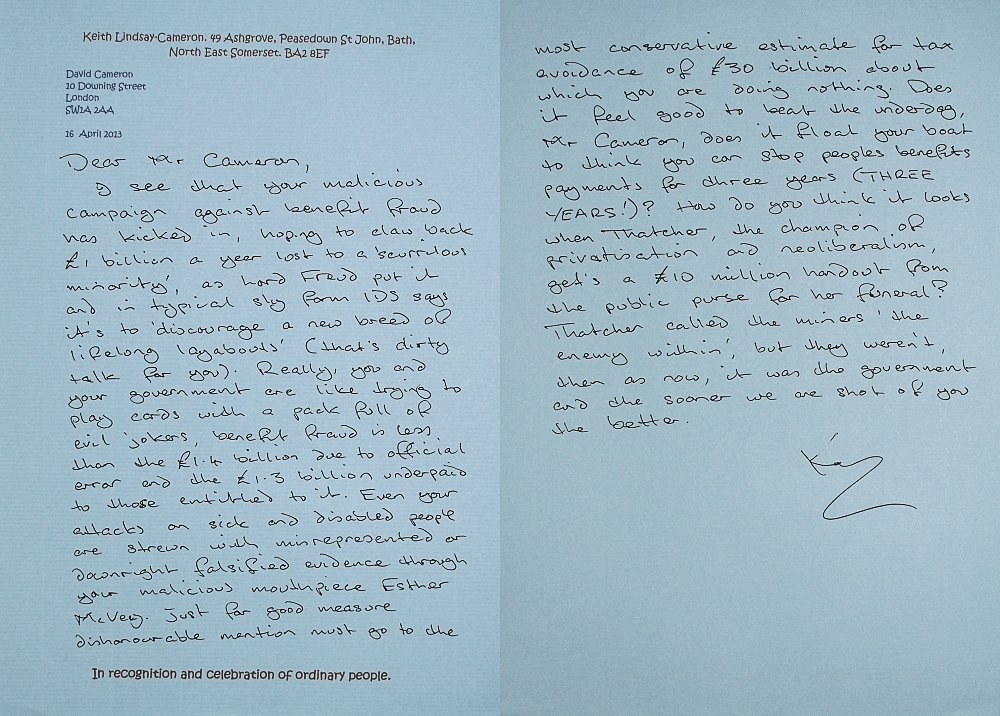 Keith Lindsay-Cameron. 49 Ashgrove, Peasedown St John, Bath,
North East Somerset. BA2 8EF
David Cameron
10 Downing Street
London
SW1A 2AA
16 April 2013
Dear Mr Cameron,
I see that your malicious
campaign against benefit fraud
has kicked in, hoping to claw back
£1 billion a year lost to a 'scurrilous
minority', as Lord Freud put it
and in typical sly form IDS says
it's to 'discourage a new breed of
lifelong layabouts' (that's dirty
talk for you). Really, you and
your government are like trying to
play cards with a pack full of
evil jokers, benefit fraud is less
than the £1.4 billion due to official
error and the £1.3 billion underpaid
to those entitled to it. Even your
attacks on sick and disabled people
are strewn with misrepresented or
downright falsified evidence through
your malicious mouthpiece Esther
McVey. Just for good measure
dishonourable mention must go to the
In recognition and celebration of ordinary people.
most conservative estimate for tax
avoidance of £30 billion about
which you are doing nothing. Does
it feel good to beat the underdog,
Mr Cameron, does it float your boat
to think you can stop peoples benefits
payments for three years (THREE
YEARS!)? How do you think it looks
when Thatcher, the champion of
privatisation and neoliberalism,
get's a £10 million handout from
the public purse for her funeral?
Thatcher called the miners 'the
enemy within', but they weren't,
then as now, it was the government
and the sooner we are shot of you
the better.